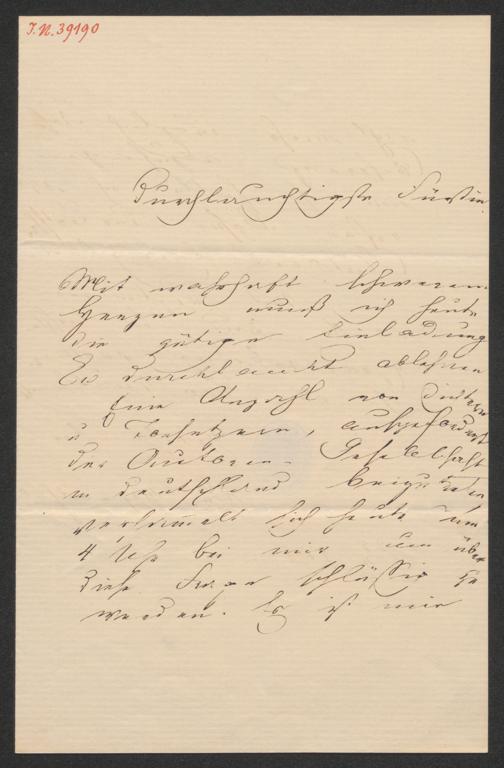 J.N. 39190
Durchlauchtigste Fürstin
Mit wahrhaft schweren
Herzen muß ich heute
die gütige Einladung
Eu Durchlaucht ablehnen
Eine Anzahl von Dichtern
u Tonsetzern, aufgefordert
der Autoren-Gesellschaft
in Deutschland beizutreten
versammelt sich heute um
4 Uhr bei mir um über
diese Frage schlüssig zu
werden. Es ist mir